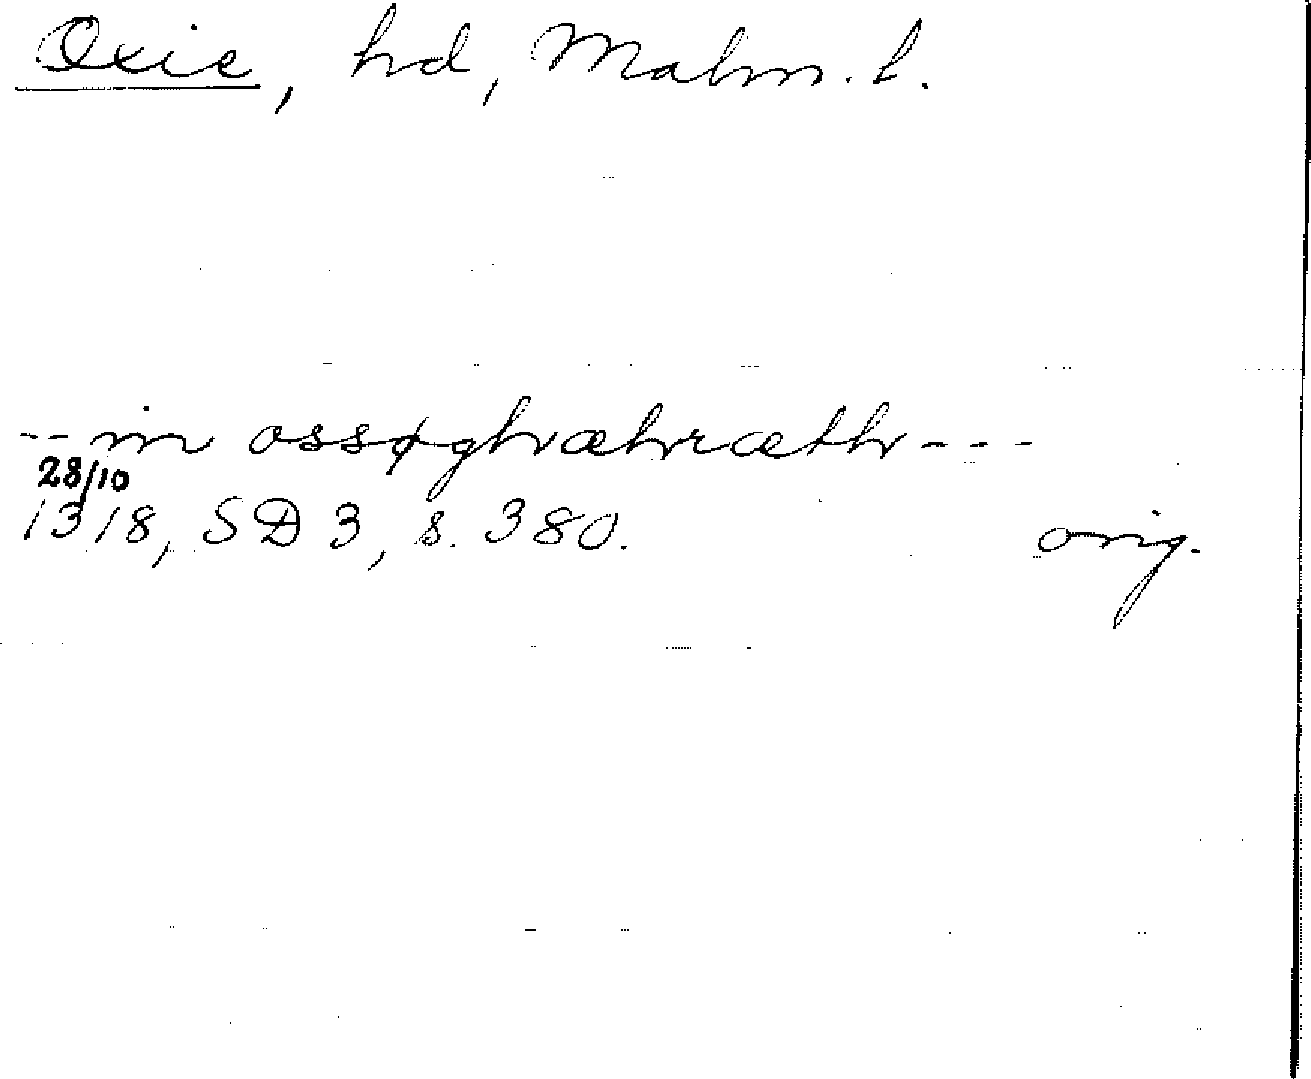 Oxie, hd, Malm. l.
-- in ossøghæhræth ---
28/10
1318, SD 3, s. 380. orig.